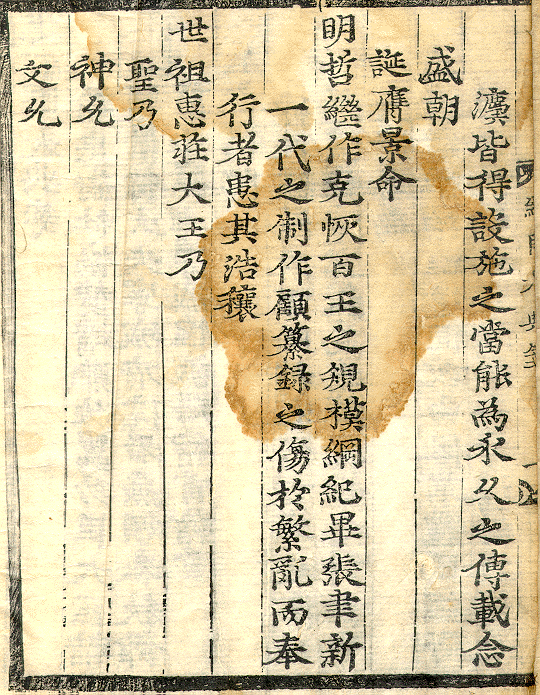 漢皆得設施之當能為永久之傳載念
盛朝
誕膺景命
明哲繼作克恢百王之規模綱紀畢張聿新
一代之制作顧纂錄之傷於繁亂而奉
行者患其浩穰
世祖惠莊大王乃
聖乃
神允
文允